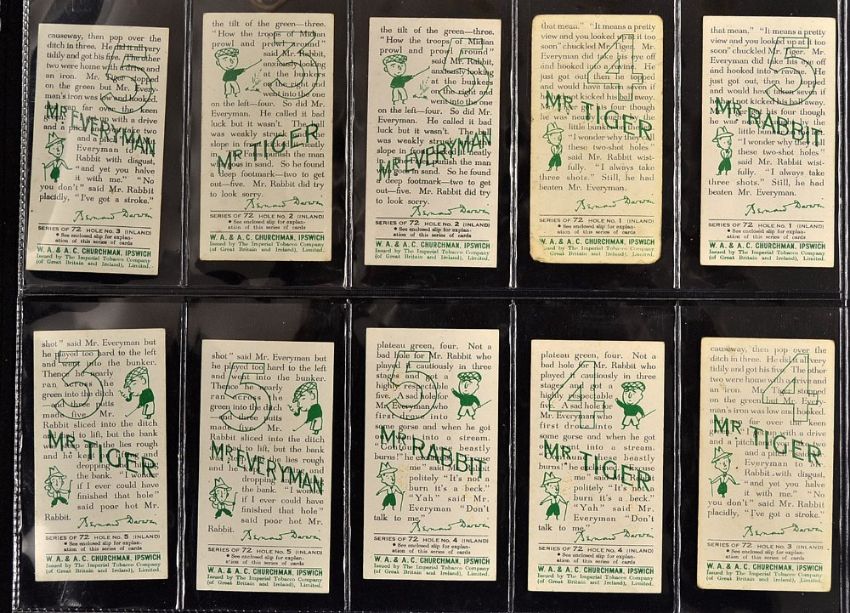 causeway, then pop over the
ditch in three. He did it all very
tidily and got his five. The other
two were home with a drive and
an iron. Mr. Tiger topped
on the green but Mr. Every-
man's iron was low and hooked.
with a drive and
a pitch
Everyman and
Rabbit with disgust,
"and yet you halve
it with me." "No
you don't" said Mr. Rabbit
placidly, "I've got a stroke."
5
MR EVERYMAN
Bernard Darwin
SERIES OF 72 HOLE No. 3 (INLAND)
● See enclosed slip for explan-
ation of this series of cards
W. A. & A. C. CHURCHMAN, IPSWICH
Issued by The Imperial Tobacco Company
(of Great Britain and Ireland), Limited.
the tilt of the green—three.
"How the troops of Midian
prowl and prowl around"
said Mr. Rabbit,
anxiously looking
at the bunkers
on the right and
went into the one
on the left—four. So did Mr.
Everyman. He called it bad
luck but it wasn't. The
was weakly
slope
in Parkish the man
goes in So he found
a deep footmark—two to get
out—five. Mr. Rabbit did try
to look sorry.
3
MR TIGER
Bernard Darwin
SERIES OF 72 HOLE No. 2 (INLAND)
● See enclosed slip for explan-
ation of this series of cards
W. A. & A. C. CHURCHMAN, IPSWICH
Issued by The Imperial Tobacco Company
(of Great Britain and Ireland), Limited.
the tilt of the green—three.
"How the troops of Midian
prowl and prowl around"
said Mr. Rabbit,
anxiously looking
at the bunkers
on the right and
went into the one
on the left—four. So did Mr.
Everyman. He called it bad
luck but it wasn't. The
was weakly
slope
in the man
goes in So he found
a deep footmark—two to get
out—five. Mr. Rabbit did try
to look sorry.
5
MR EVERYMAN
Bernard Darwin
SERIES OF 72 HOLE No. 2 (INLAND)
● See enclosed slip for explan-
ation of this series of cards
W. A. & A. C. CHURCHMAN, IPSWICH
Issued by The Imperial Tobacco Company
(of Great Britain and Ireland), Limited.
that mean." "It means a pretty
view and you looked up at it too
soon" chuckled Mr. Tiger. Mr.
Everyman did take his eye off
and hooked into a ravine. He
just got out, then he topped
and would have taken seven if
he hadn't kicked his ball away.
for his four though
he was
little bunker
"I wonder why they
"I wonder why they call
these two-shot holes"
said Mr. Rabbit wist-
fully. "I always take
three shots." Still, he had
beaten Mr. Everyman.
4
MR TIGER
Bernard Darwin
SERIES OF 72 HOLE No. 1 (INLAND)
● See enclosed slip for explan-
ation of this series of cards
W. A. & A. C. CHURCHMAN, IPSWICH
Issued by The Imperial Tobacco Company
(of Great Britain and Ireland), Limited.
that mean." "It means a pretty
view and you looked up at it too
soon" chuckled Mr. Tiger. Mr.
Everyman did take his eye off
and hooked into a ravine. He
just got out, then he topped
and would have taken seven if
not kicked his ball away.
for his four though
he was not
little bunker
"I wonder why they
these two-shot holes"
said Mr. Rabbit wist-
fully. "I always take
three shots." Still, he had
beaten Mr. Everyman.
5
MR RABBIT
Bernard Darwin
SERIES OF 72 HOLE No. 1 (INLAND)
● See enclosed slip for explan-
ation of this series of cards
W. A. & A. C. CHURCHMAN, IPSWICH
Issued by The Imperial Tobacco Company
(of Great Britain and Ireland), Limited.
shot" said Mr. Everyman but
he played too hard to the left
and went into the bunker.
Thence he nearly
ran across
green into the
ditch and three putts
made five. Mr.
Rabbit sliced into the ditch
lift, but the bank
lies rough
and he
dropping
the bank. "I wonder
if I ever could have
finished that hole"
said poor hot Mr.
Rabbit.
3
MR TIGER
Bernard Darwin
SERIES OF 72 HOLE No. 5 (INLAND)
● See enclosed slip for explan-
ation of this series of cards
W. A. & A. C. CHURCHMAN, IPSWICH
Issued by The Imperial Tobacco Company
(of Great Britain and Ireland), Limited.
shot" said Mr. Everyman but
he played too hard to the left
and went into the bunker.
Thence he nearly
ran across the
green into the
ditch and three putts
made five. Mr.
Rabbit sliced into the ditch
lift, but the bank
lies rough
dropping
the bank. "I wonder
if I ever could have
finished that hole"
said poor hot Mr.
Rabbit.
5
MR EVERYMAN
Bernard Darwin
SERIES OF 72 HOLE No. 5 (INLAND)
● See enclosed slip for explan-
ation of this series of cards
W. A. & A. C. CHURCHMAN, IPSWICH
Issued by The Imperial Tobacco Company
(of Great Britain and Ireland), Limited.
plateau green, four. Not a
bad hole for Mr. Rabbit who
played it cautiously in three
stages and got a
highly respectable
five. A sad hole for
Mr. Everyman who
first drove into
some gorse and when he got
into a stream.
beastly
burns!" he
me" said
politely "It's not a
burn it's a beck."
"Yah" said Mr.
Everyman "Don't
talk to me."
5
MR RABBIT
Bernard Darwin
SERIES OF 72 HOLE No. 4 (INLAND)
● See enclosed slip for explan-
ation of this series of cards
W. A. & A. C. CHURCHMAN, IPSWICH
Issued by The Imperial Tobacco Company
(of Great Britain and Ireland), Limited.
plateau green, four. Not a
bad hole for Mr. Rabbit who
played it cautiously in three
stages and got a
highly respectable
five. A sad hole for
Mr. Everyman who
first drove into
some gorse and when he got
into a stream.
beastly
burns!" he
me" said
politely "It's not a
burn it's a beck."
"Yah" said Mr.
Everyman "Don't
talk to me."
4
MR TIGER
Bernard Darwin
SERIES OF 72 HOLE No. 4 (INLAND)
● See enclosed slip for explan-
ation of this series of cards
W. A. & A. C. CHURCHMAN, IPSWICH
Issued by The Imperial Tobacco Company
(of Great Britain and Ireland), Limited.
causeway, then pop over the
ditch in three. He did it all very
tidily and got his five. The other
two were home with a drive and
an iron. Mr. Tiger
on the green but Mr. Every-
man's iron was low and hooked.
far over the keen
with a drive and
a pitch
Everyman and
Rabbit with disgust,
"and yet you halve
it with me." "No
you don't" said Mr. Rabbit
placidly, "I've got a stroke."
4
MR TIGER
Bernard Darwin
SERIES OF 72 HOLE No. 3 (INLAND)
● See enclosed slip for explan-
ation of this series of cards
W. A. & A. C. CHURCHMAN, IPSWICH
Issued by The Imperial Tobacco Company
(of Great Britain and Ireland), Limited.